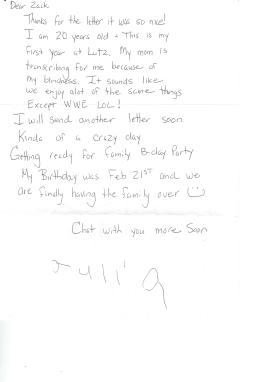 Dear Zack
Thanks for the letter it was so nice!
I am 20 years old - This is my
first year at Lutz. My mom is
transcribing for me because of
my blindness. It sounds like
we enjoy alot of the same things
Except WWE LOL!
I will send another letter soon
Kinda of a crazy day
Getting ready for family B-day Party
My Birthday was Feb 21ST and we
are finally having the family over
Chat with you more Soon